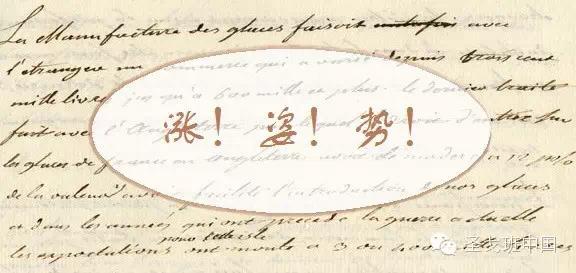 La Manufacture des glaces faisoit autrefois avec
l'etranger un commerce qui a varié depuis trois cent
mille livres jusqu'à 600 mille et plus. le dernier traité
fait avec l'Angleterre
涨！姿！势！
les glaces de france en angleterre 12 p%
de la valeur avoit facilité l'introduction de nos glaces
et dans les années qui ont précédé la guerre actuelle
pour cette isle
les exportations ont monté a 3 ou 400
圣戈班中国